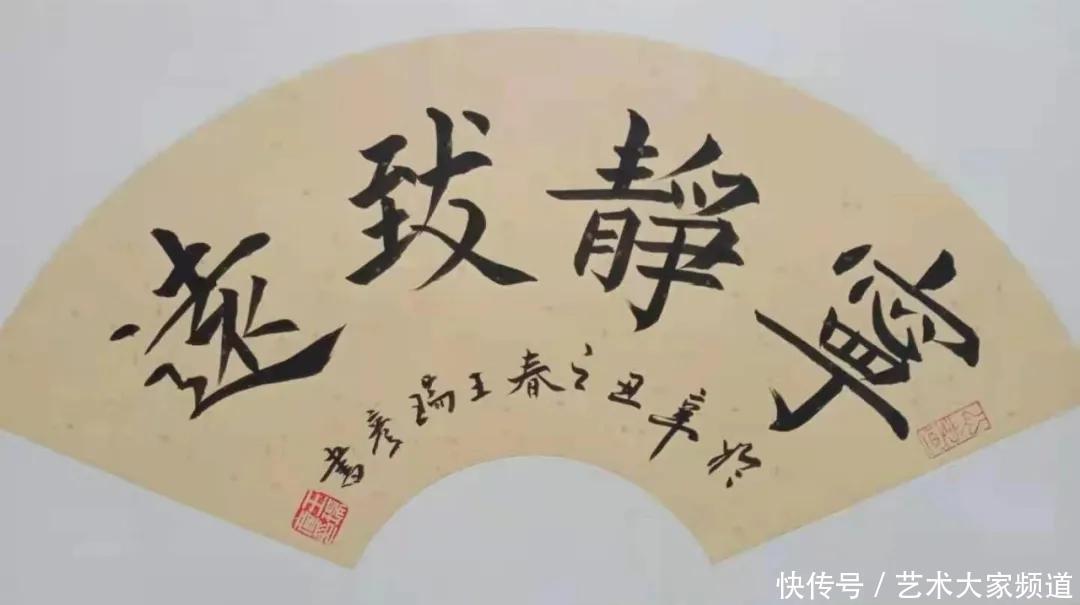 寧靜致遠
辛丑之春王瑞彥書
快传号 / 艺术大家频道